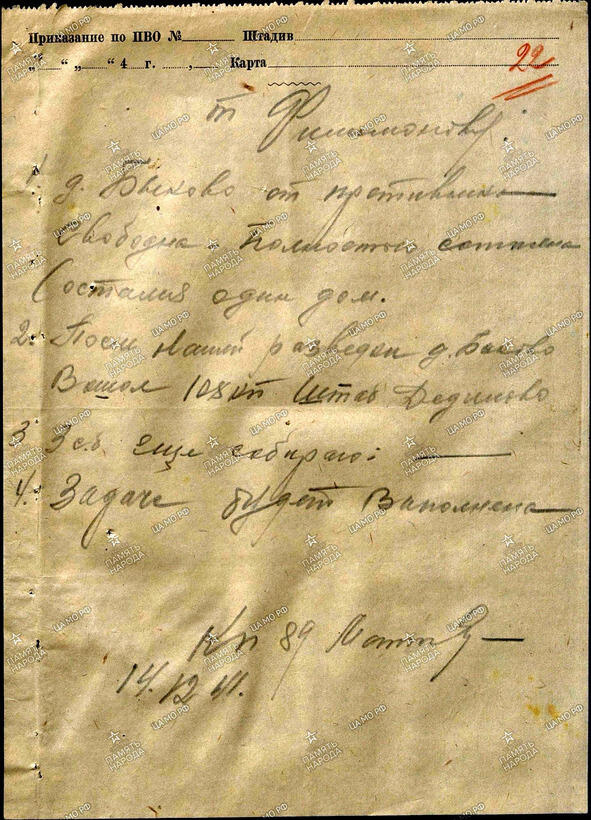 Приказание по ПВО № Штадив
„ “ „ “ 4 г. , Карта
22
т Филимонову.
1. д. Быково от противника
свободна. Полностью сожжена
Остался один дом.
2. После нашей разведки д. Быково
Вошол 108кп Штаб Дединово
3 Зсб еще собираю:
4. Задача будет Выполнена
Кп 89
14.12.41.
ПАМЯТЬ НАРОДА
ЦАМО.РФ